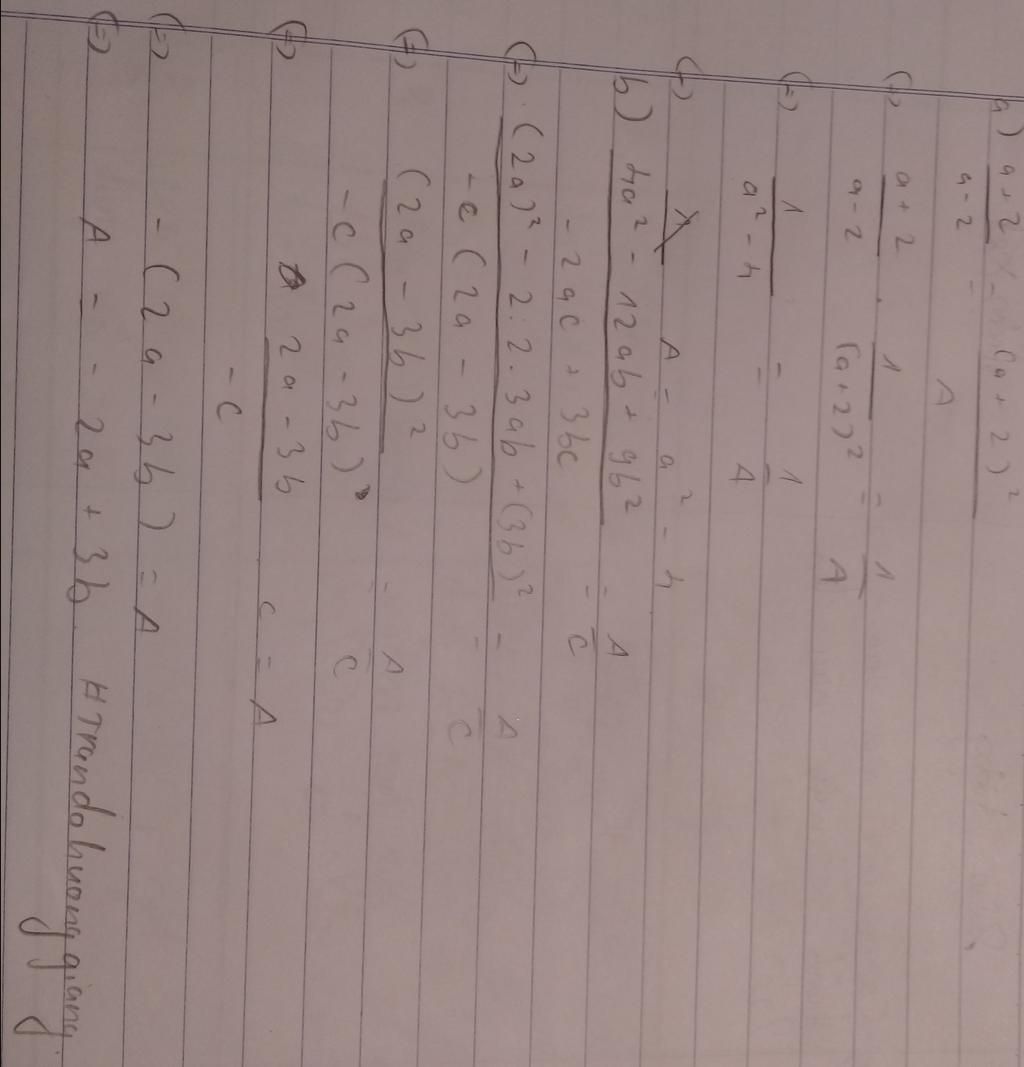 a) a+2 / a-2 = (a+2)² / A
(=) a+2 / a-2 . 1 / (a+2)² = 1 / A
(=) 1 / a²-4 = 1 / A
(=) A = a² - 4
b) 4a² - 12ab + 9b² / -2ac + 3bc = A / C
(=) (2a)² - 2.2.3ab + (3b)² / -c(2a - 3b) = A / C
(=) (2a - 3b)² / -c(2a - 3b) = A / C
(=) 2a - 3b / -c c = A
(=) -(2a - 3b) = A
(=) A = -2a + 3b HTrandohuonggiang